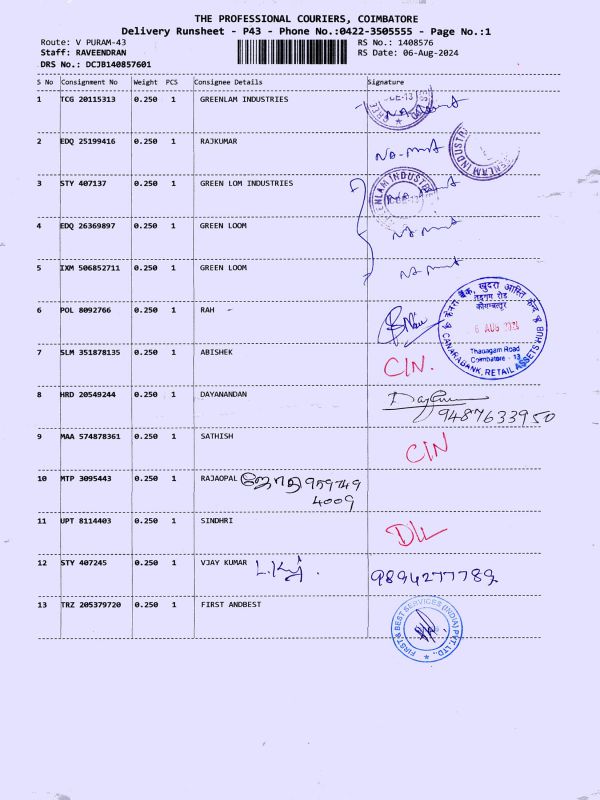 THE PROFESSIONAL COURIERS, COIMBATORE
Delivery Runsheet - P43 - Phone No.:0422-3505555 - Page No.:1
Route: V PURAM-43 RS No.: 1408576
Staff: RAVEENDRAN RS Date: 06-Aug-2024
DRS No.: DCJB140857601
S No Consignment No Weight PCS Consignee Details Signature
1 TCG 20115313 0.250 1 GREENLAM INDUSTRIES
2 EDQ 25199416 0.250 1 RAJKUMAR
3 STY 407137 0.250 1 GREEN LOM INDUSTRIES
4 EDQ 26369897 0.250 1 GREEN LOOM
5 IXM 506852711 0.250 1 GREEN LOOM
6 POL 8092766 0.250 1 RAH -
केनरा बैंक, खुदरा आस्ति केन्द्र
तड़ागम रोड
कोयम्बत्तूर
6 AUG 2024
Thadagam Road
Coimbatore - 13
CANARA BANK, RETAIL ASSETS HUB
7 SLM 351878135 0.250 1 ABISHEK CIN.
8 HRD 20549244 0.250 1 DAYANANDAN
9487633950
9 MAA 574878361 0.250 1 SATHISH CIN
10 MTP 3095443 0.250 1 RAJAOPAL 959749
4009
11 UPT 8114403 0.250 1 SINDHRI
12 STY 407245 0.250 1 VJAY KUMAR 9894277789
13 TRZ 205379720 0.250 1 FIRST ANDBEST
FIRST & BEST SERVICES (INDIA) PVT. LTD.